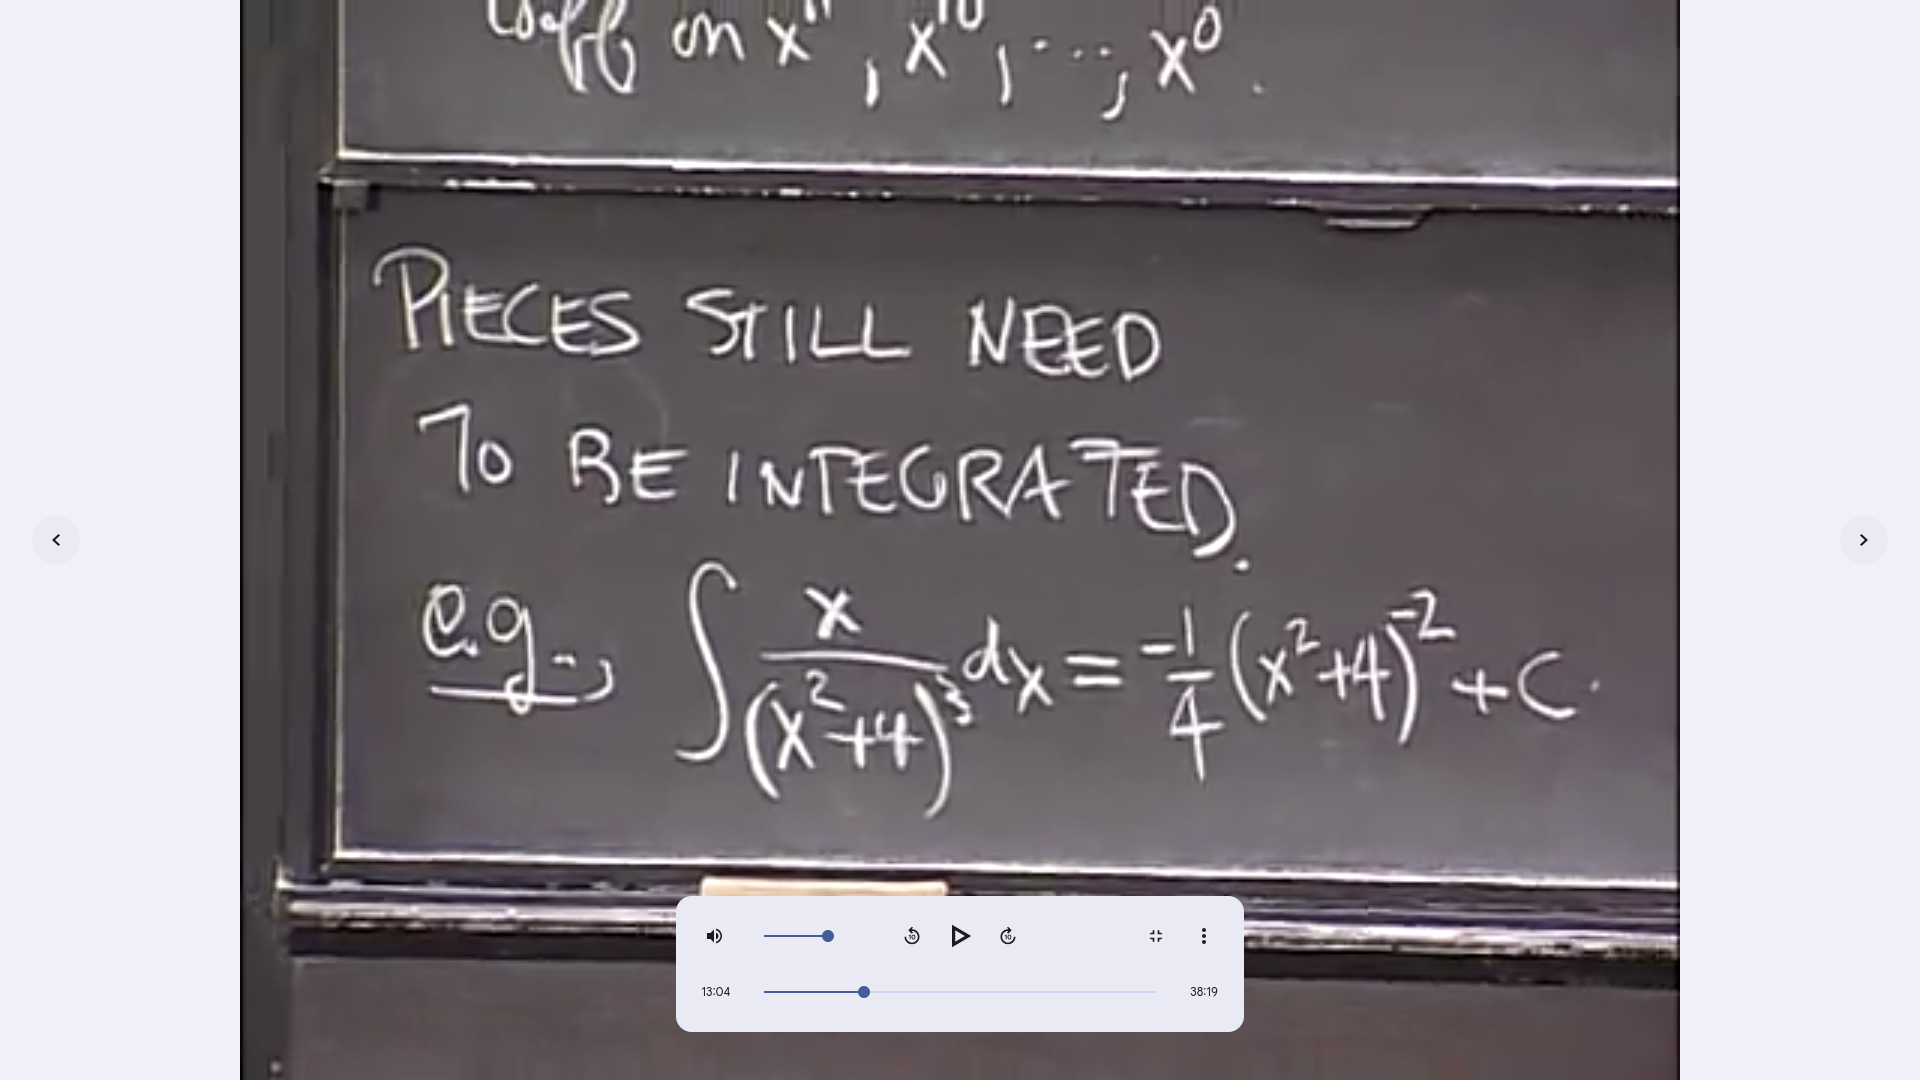 coeff on x^11, x^10, ..., x^0.
PIECES STILL NEED
TO BE INTEGRATED.
e.g., ∫ x/(x^2+4)^3 dx = -1/4 (x^2+4)^-2 + C.
10
10
13:04
38:19